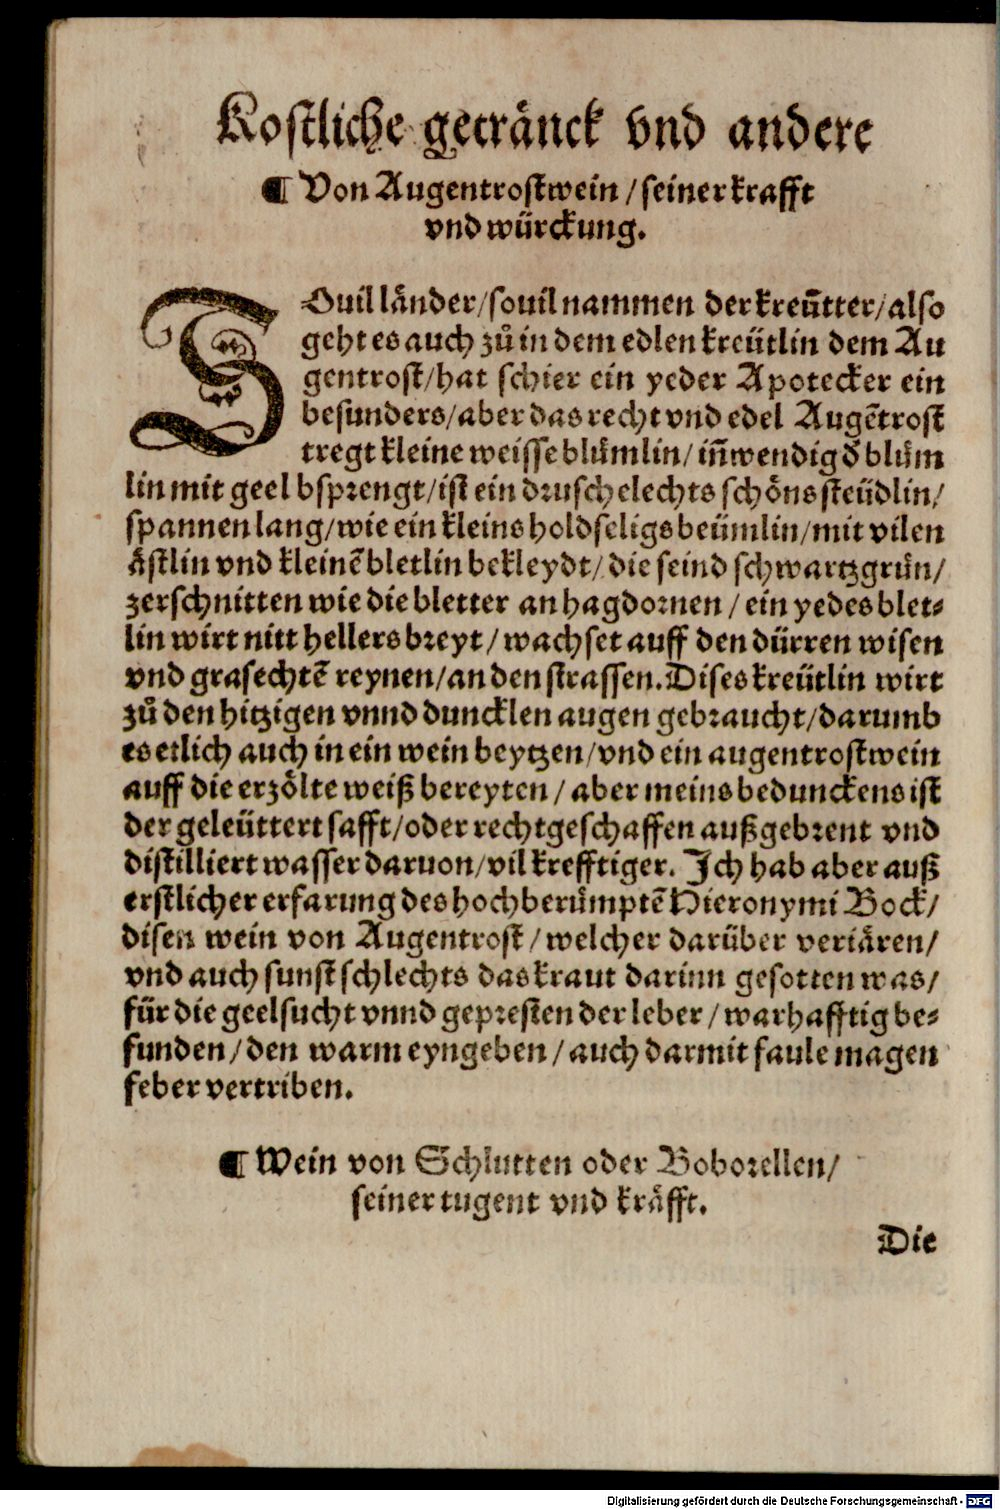 Kostliche getränck vnd andere
¶ Von Augentrostwein / seiner krafft
vnd würckung.
SOuil länder / souil nammen der kreütter / also
geht es auch zů in dem edlen kreütlin dem Au
gentrost / hat schier ein yeder Apotecker ein
besunders / aber das recht vnd edel Augẽtrost
tregt kleine weisse blůmlin / iñwendig d̃ blům
lin mit geel bsprengt / ist ein druschelechts schöns steüdlin /
spannen lang / wie ein kleins holdseligs beümlin / mit vilen
ästlin vnd kleinẽ bletlin bekleydt / die seind schwartzgrün /
zerschnitten wie die bletter an hagdornen / ein yedes blet⸗
lin wirt nitt hellers breyt / wachset auff den dürren wisen
vnd grasechtẽ reynen / an den strassen. Dises kreütlin wirt
zů den hitzigen vnnd duncklen augen gebraucht / darumb
es etlich auch in ein wein beytzen / vnd ein augentrostwein
auff die erzölte weiß bereyten / aber meins bedunckens ist
der geleüttert safft / oder rechtgeschaffen außgebrent vnd
distilliert wasser daruon / vil krefftiger. Ich hab aber auß
erstlicher erfarung des hochberümptẽ Hieronymi Bock /
disen wein von Augentrost / welcher darüber veriären /
vnd auch sunst schlechts das kraut darinn gesotten was /
für die geelsucht vnnd gepresten der leber / warhafftig be⸗
funden / den warm eyngeben / auch darmit faule magen
feber vertriben.
¶ Wein von Schlutten oder Boborellen /
seiner tugent vnd kräfft.
Die
Digitalisierung gefördert durch die Deutsche Forschungsgemeinschaft - DFG